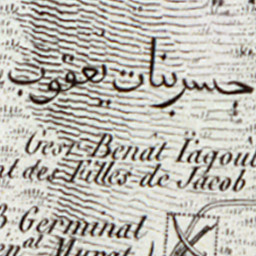 جسر بنات يعقوب
Gesr-Benât Iäqoub
nt des Filles de Jacob
3 Germinal
en.al Murat